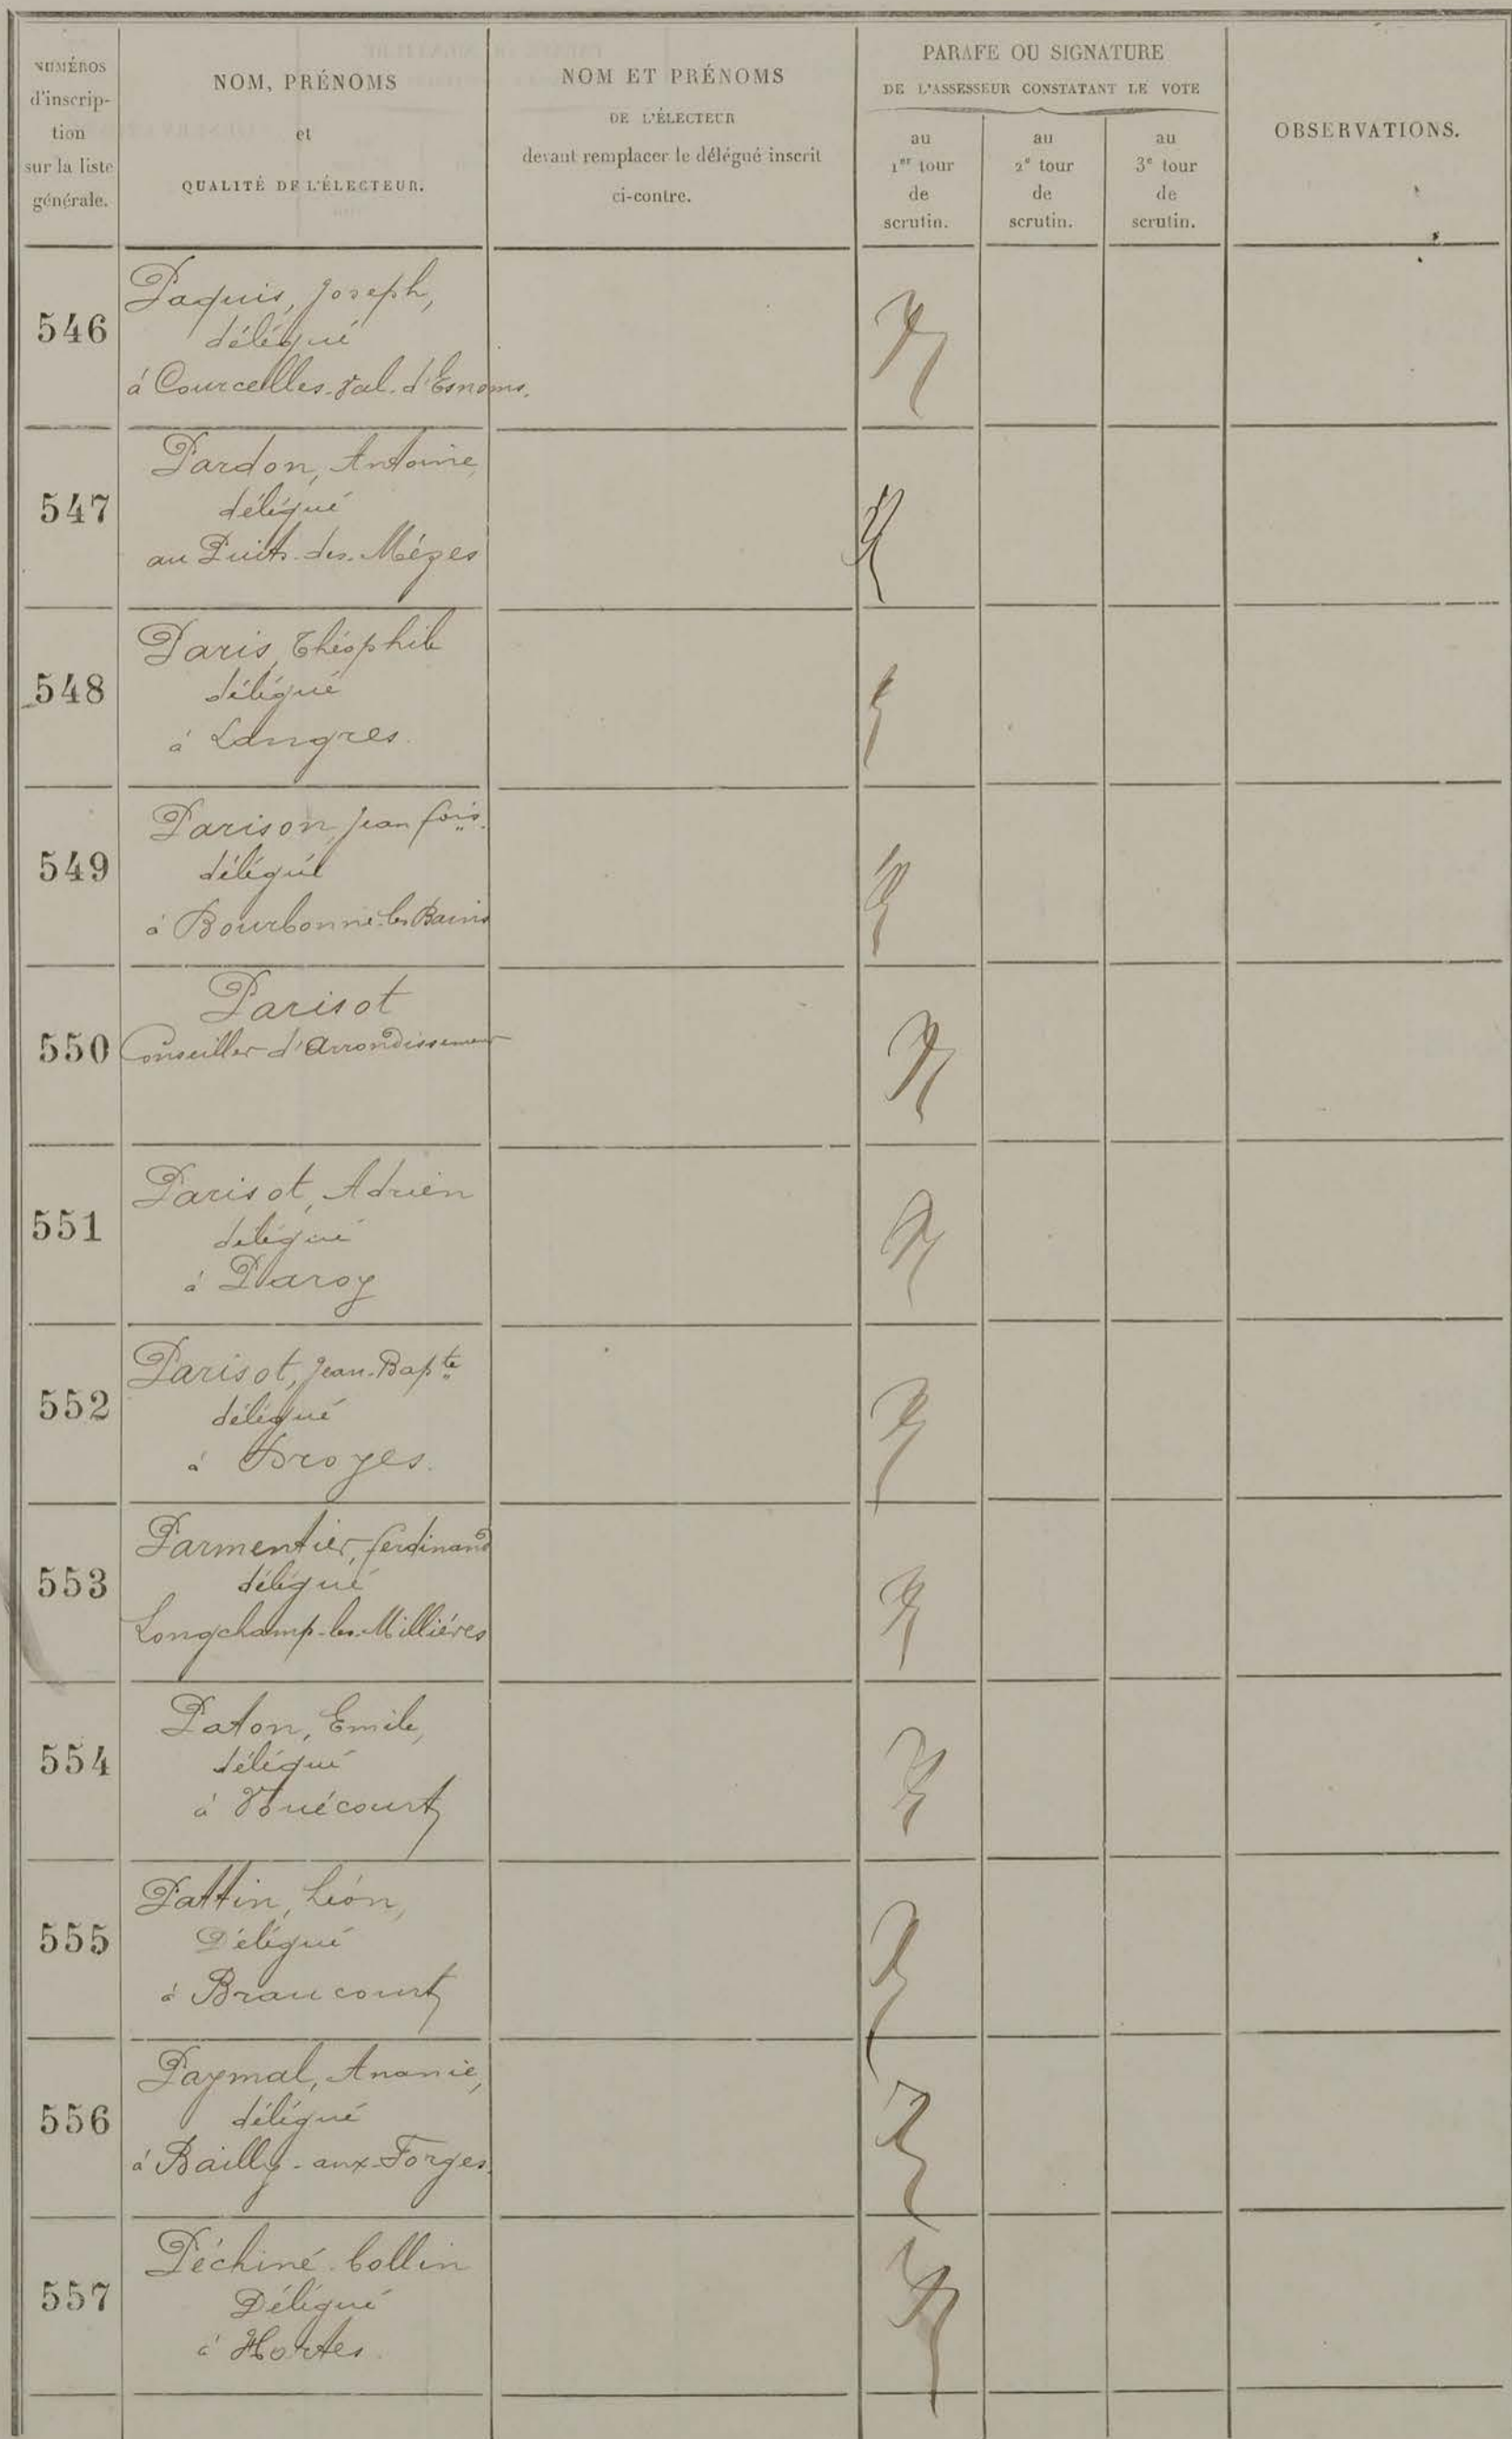 NUMÉROS
d'inscrip-
tion
sur la liste
générale.
NOM, PRÉNOMS
et
QUALITÉ DE L'ÉLECTEUR.
NOM ET PRÉNOMS
DE L'ÉLECTEUR
devant remplacer le délégué inscrit
ci-contre.
PARAFE OU SIGNATURE
DE L'ASSESSEUR CONSTATANT LE VOTE
au
1er tour
de
scrutin.
au
2e tour
de
scrutin.
au
3e tour
de
scrutin.
OBSERVATIONS.
546
Paquis, Joseph,
délégué
à Courcelles-Val-d'Esnoms.
547
Pardon, Antoine,
délégué
au Puits-des-Mézes
548
Paris, Théophile
délégué
à Langres.
549
Parison, Jean fois.
délégué
à Bourbonne-les-Bains
550
Parisot
Conseiller d'Arrondissement
551
Parisot, Adrien
délégué
à Paroy
552
Parisot, Jean-Bapte
délégué
à Droyes.
553
Parmentier, ferdinand
délégué
Longchamp-les-Millières
554
Paton, Emile,
délégué
à Vouécourt
555
Pattin, Léon,
Délégué
à Braucourt
556
Paymal, Ananie,
délégué
à Bailly-aux-Forges.
557
Péchiné-Collin
Délégué
à Hortes.